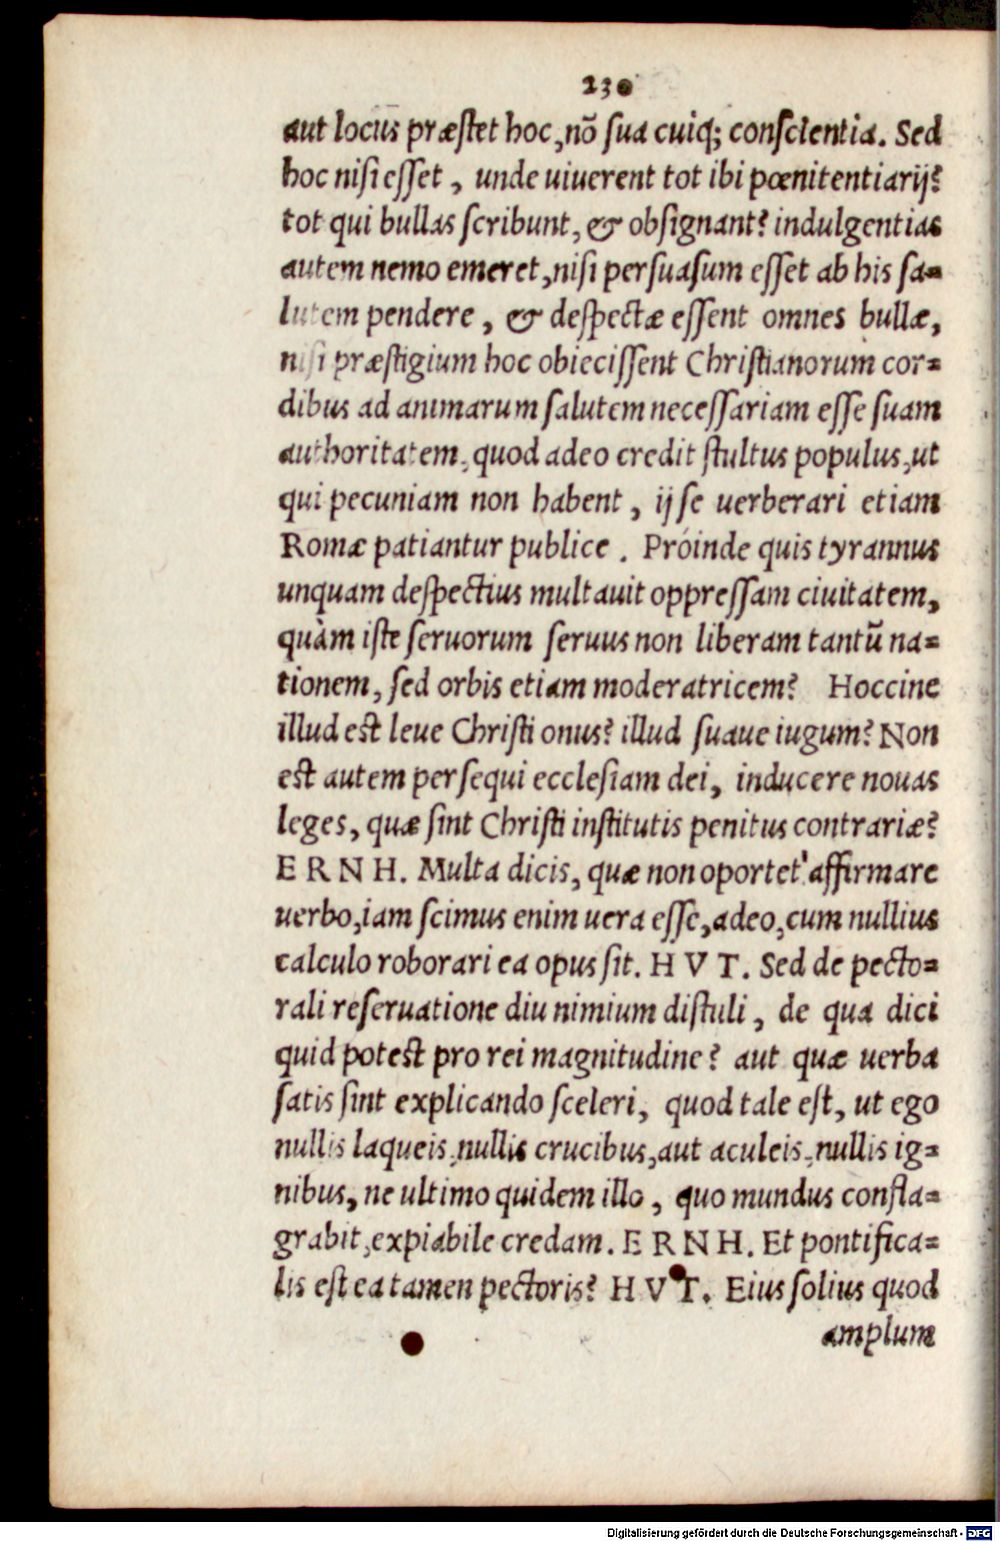 230
aut locus præstet hoc, nõ sua cuiq; conscientia. Sed
hoc nisi esset, unde uiuerent tot ibi pœnitentiarij?
tot qui bullas scribunt, & obsignant? indulgentias
autem nemo emeret, nisi persuasum esset ab his sa=
lutem pendere, & despectæ essent omnes bullæ,
nisi præstigium hoc obiecissent Christianorum cor=
dibus ad animarum salutem necessariam esse suam
authoritatem, quod adeo credit stultus populus, ut
qui pecuniam non habent, ij se uerberari etiam
Romæ patiantur publice. Próinde quis tyrannus
unquam despectius multauit oppressam ciuitatem,
quàm iste seruorum seruus non liberam tantũ na=
tionem, sed orbis etiam moderatricem? Hoccine
illud est leue Christi onus? illud suaue iugum? Non
est autem persequi ecclesiam dei, inducere nouas
leges, quæ sint Christi institutis penitus contrariæ?
ERNH. Multa dicis, quæ non oportet affirmare
uerbo, iam scimus enim uera esse, adeo, cum nullius
calculo roborari ea opus sit. HVT. Sed de pecto=
rali reseruatione diu nimium distuli, de qua dici
quid potest pro rei magnitudine? aut quæ uerba
satis sint explicando sceleri, quod tale est, ut ego
nullis laqueis, nullis crucibus, aut aculeis, nullis ig=
nibus, ne ultimo quidem illo, quo mundus confla=
grabit, expiabile credam. ERNH. Et pontifica=
lis est ea tamen pectoris? HVT. Eius solius quod
amplum
Digitalisierung gefördert durch die Deutsche Forschungsgemeinschaft - DFG